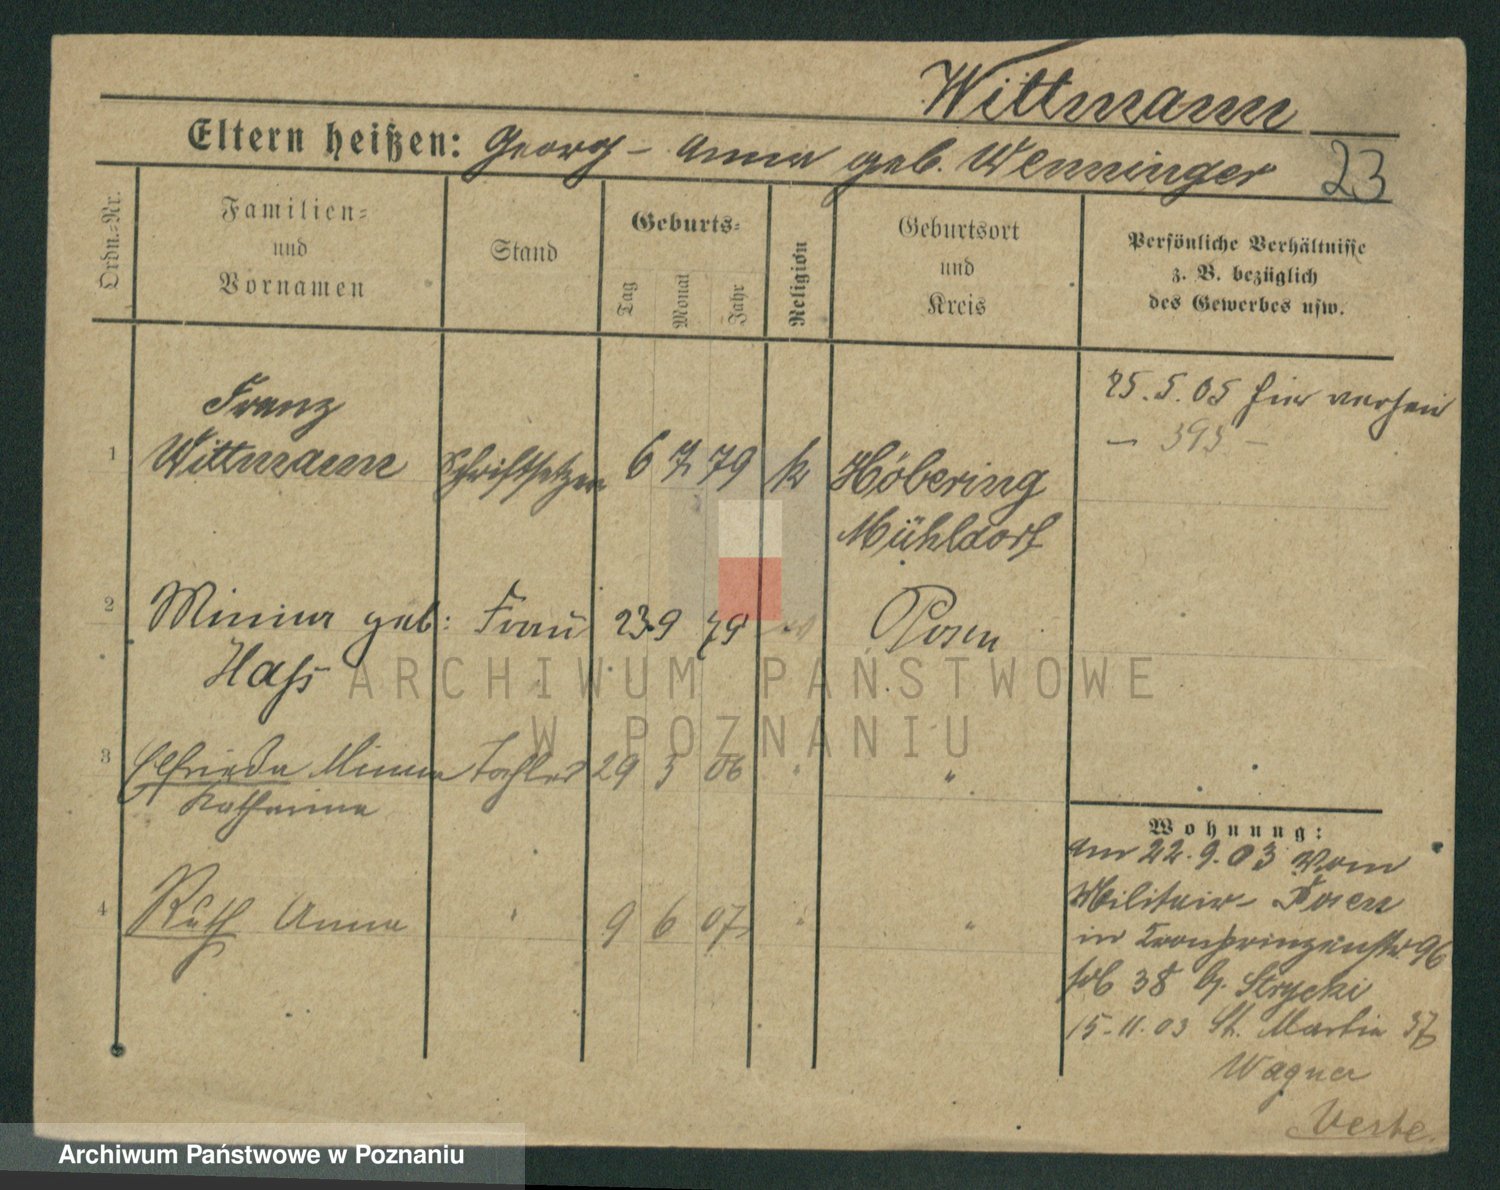 Wittmann
Eltern heißen: Georg - Anna geb. Wenninger 23
Ordn.=Nr.
Familien=
und
Vornamen
Stand
Geburts=
Tag
Monat
Jahr
Religion
Geburtsort
und
Kreis
Persönliche Verhältnisse
z. B. bezüglich
des Gewerbes usw.
25.5.05 hier verheir
- 393 -
1 Franz
Wittmann Schriftsetzer 6 7 79 k Höbering
Mühldorf
2 Minna geb: Frau 23 9 79 Posen
Hass
3 Elfrieda Minna Tochter 29 3 06 " "
Katharina
4 Ruth Anna " 9 6 07 " "
Wohnung:
am 22.9.03 vom
Militair- Posen
in Kronprinzenstr 96
38 b. Strycki
15.11.03 St. Martin 37
Wagner
ARCHIWUM PAŃSTWOWE
W POZNANIU
Archiwum Państwowe w Poznaniu